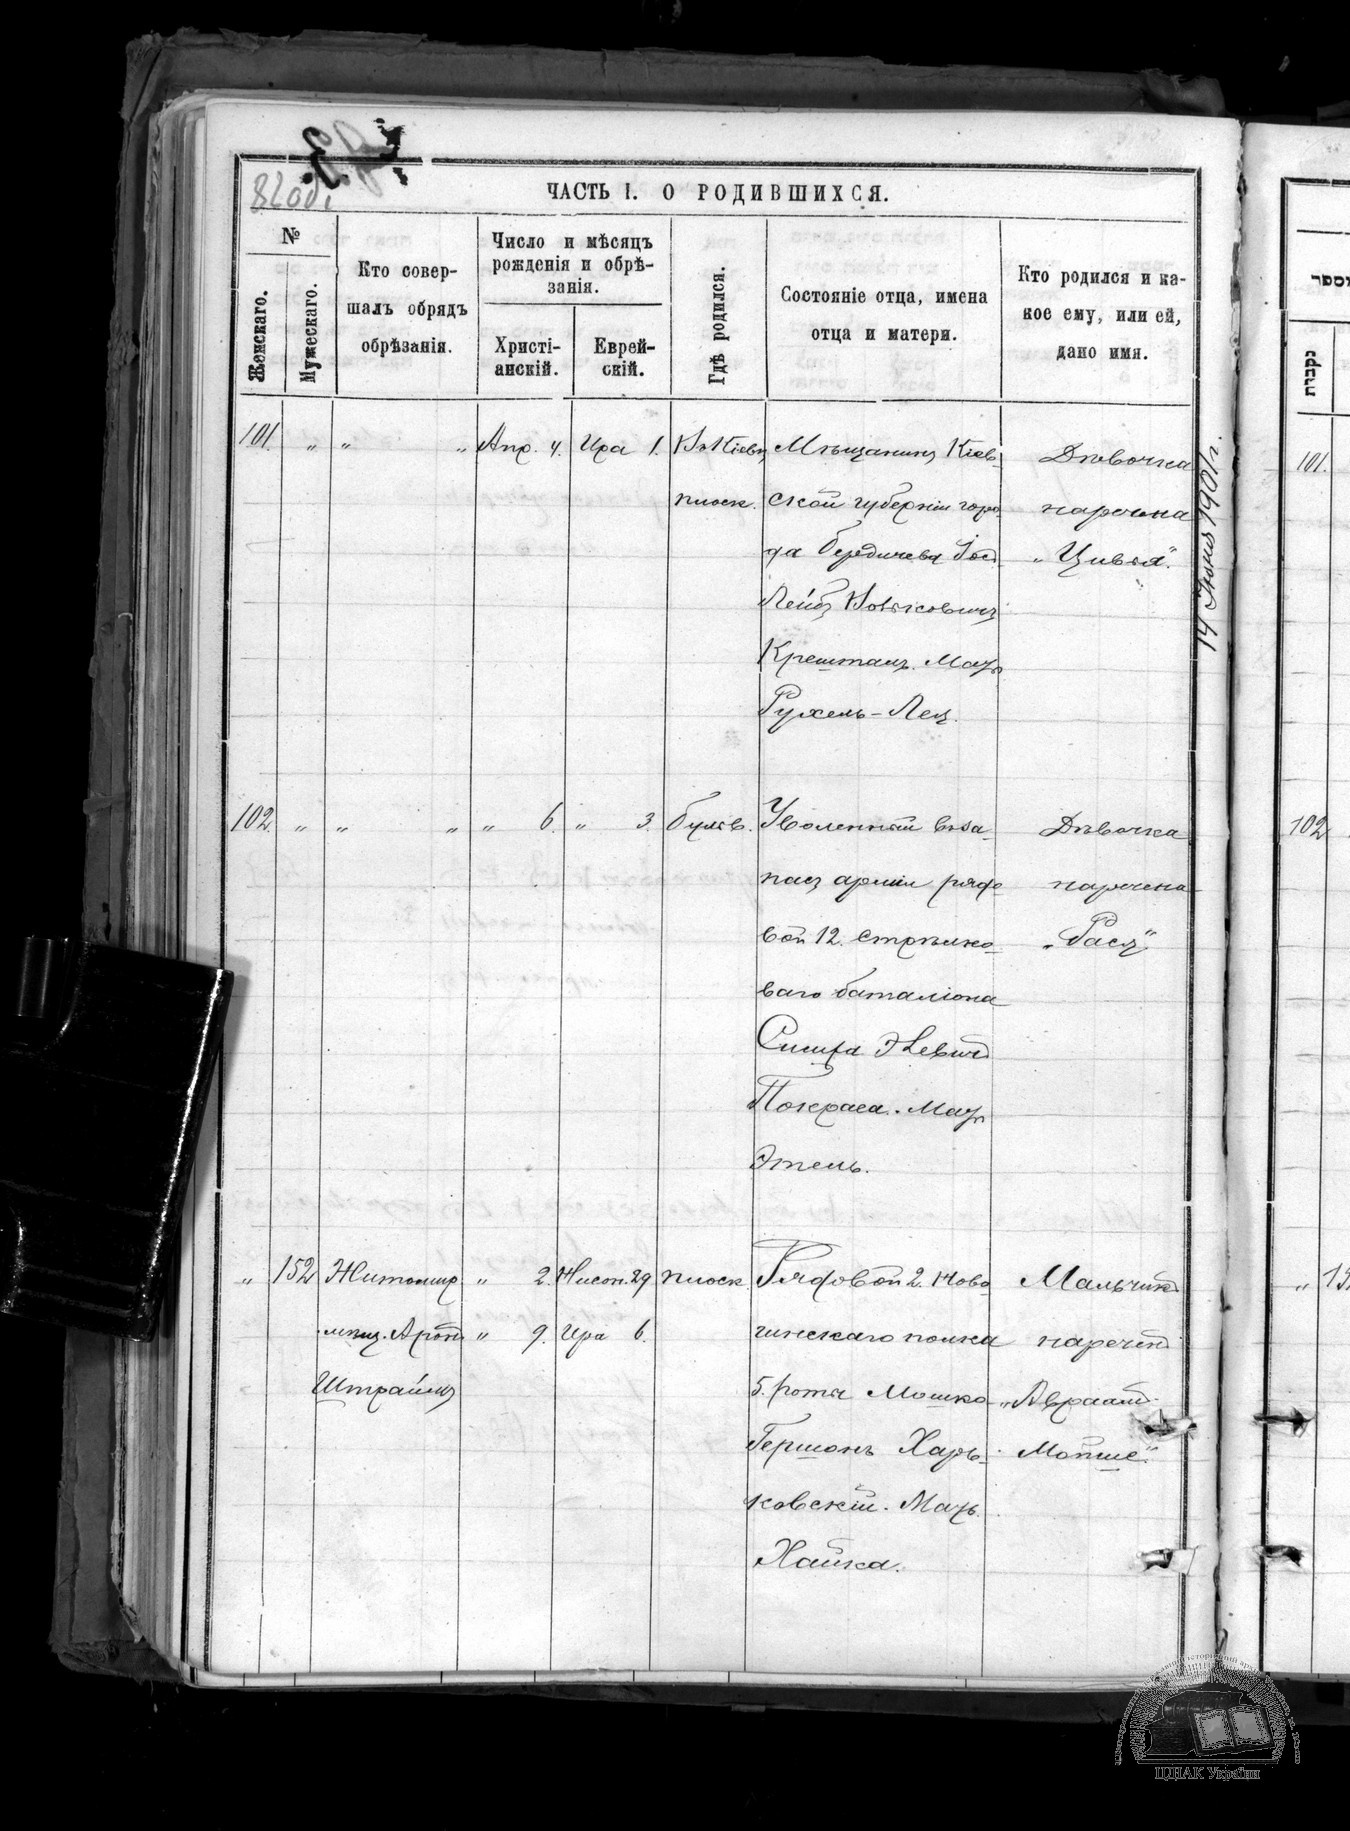 ЧАСТЬ I. О РОДИВШИХСЯ.
№
Женскаго.
Мужескаго.
Кто совер-
шалъ обрядъ
обрѣзанія.
Число и мѣсяцъ
рожденія и обрѣ-
занія.
Христі-
анскій.
Еврей-
скій.
Гдѣ родился.
Состояніе отца, имена
отца и матери.
Кто родился и ка-
кое ему, или ей,
дано имя.
101. „ „ „ Апр. 4. Ира 1.
плоск.
Мѣщанинъ Кіев-
ской губерніи горо-
да Бердичева Іос
Лейбъ
Крешталъ. Мать
Рухель-Лея.
Дѣвочка
наречена
„Цивья".
14 Іюня 1901 г.
102. „ „ „ „ 6. „ 3. бульв.
Уволенный въ за-
пасъ арміи рядо-
вой 12. стрѣлко-
ваго баталіона
Покраса. Мать
Этель.
Дѣвочка
наречена
„Рася"
„ 152 Житомир
мѣщ. Аронъ
Штраймъ
„ 2. Нисон. 29
„ 9. Ира 6.
плоск.
Рядовой 2.
полка
5. роты Мошко-
Гершонъ Харь-
ковскій. Мать
Хайка.
Мальчикъ
нареченъ
„Авраамъ-
Мойше."
מספר
נקבות
101.
102
„ 15
ЦДІАК України